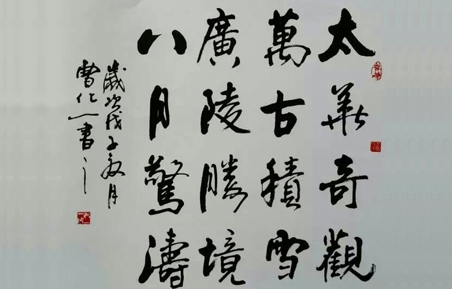 太華奇觀
萬古積雪
廣陵勝境
八月驚濤
歲次戊子春月
曹化一書